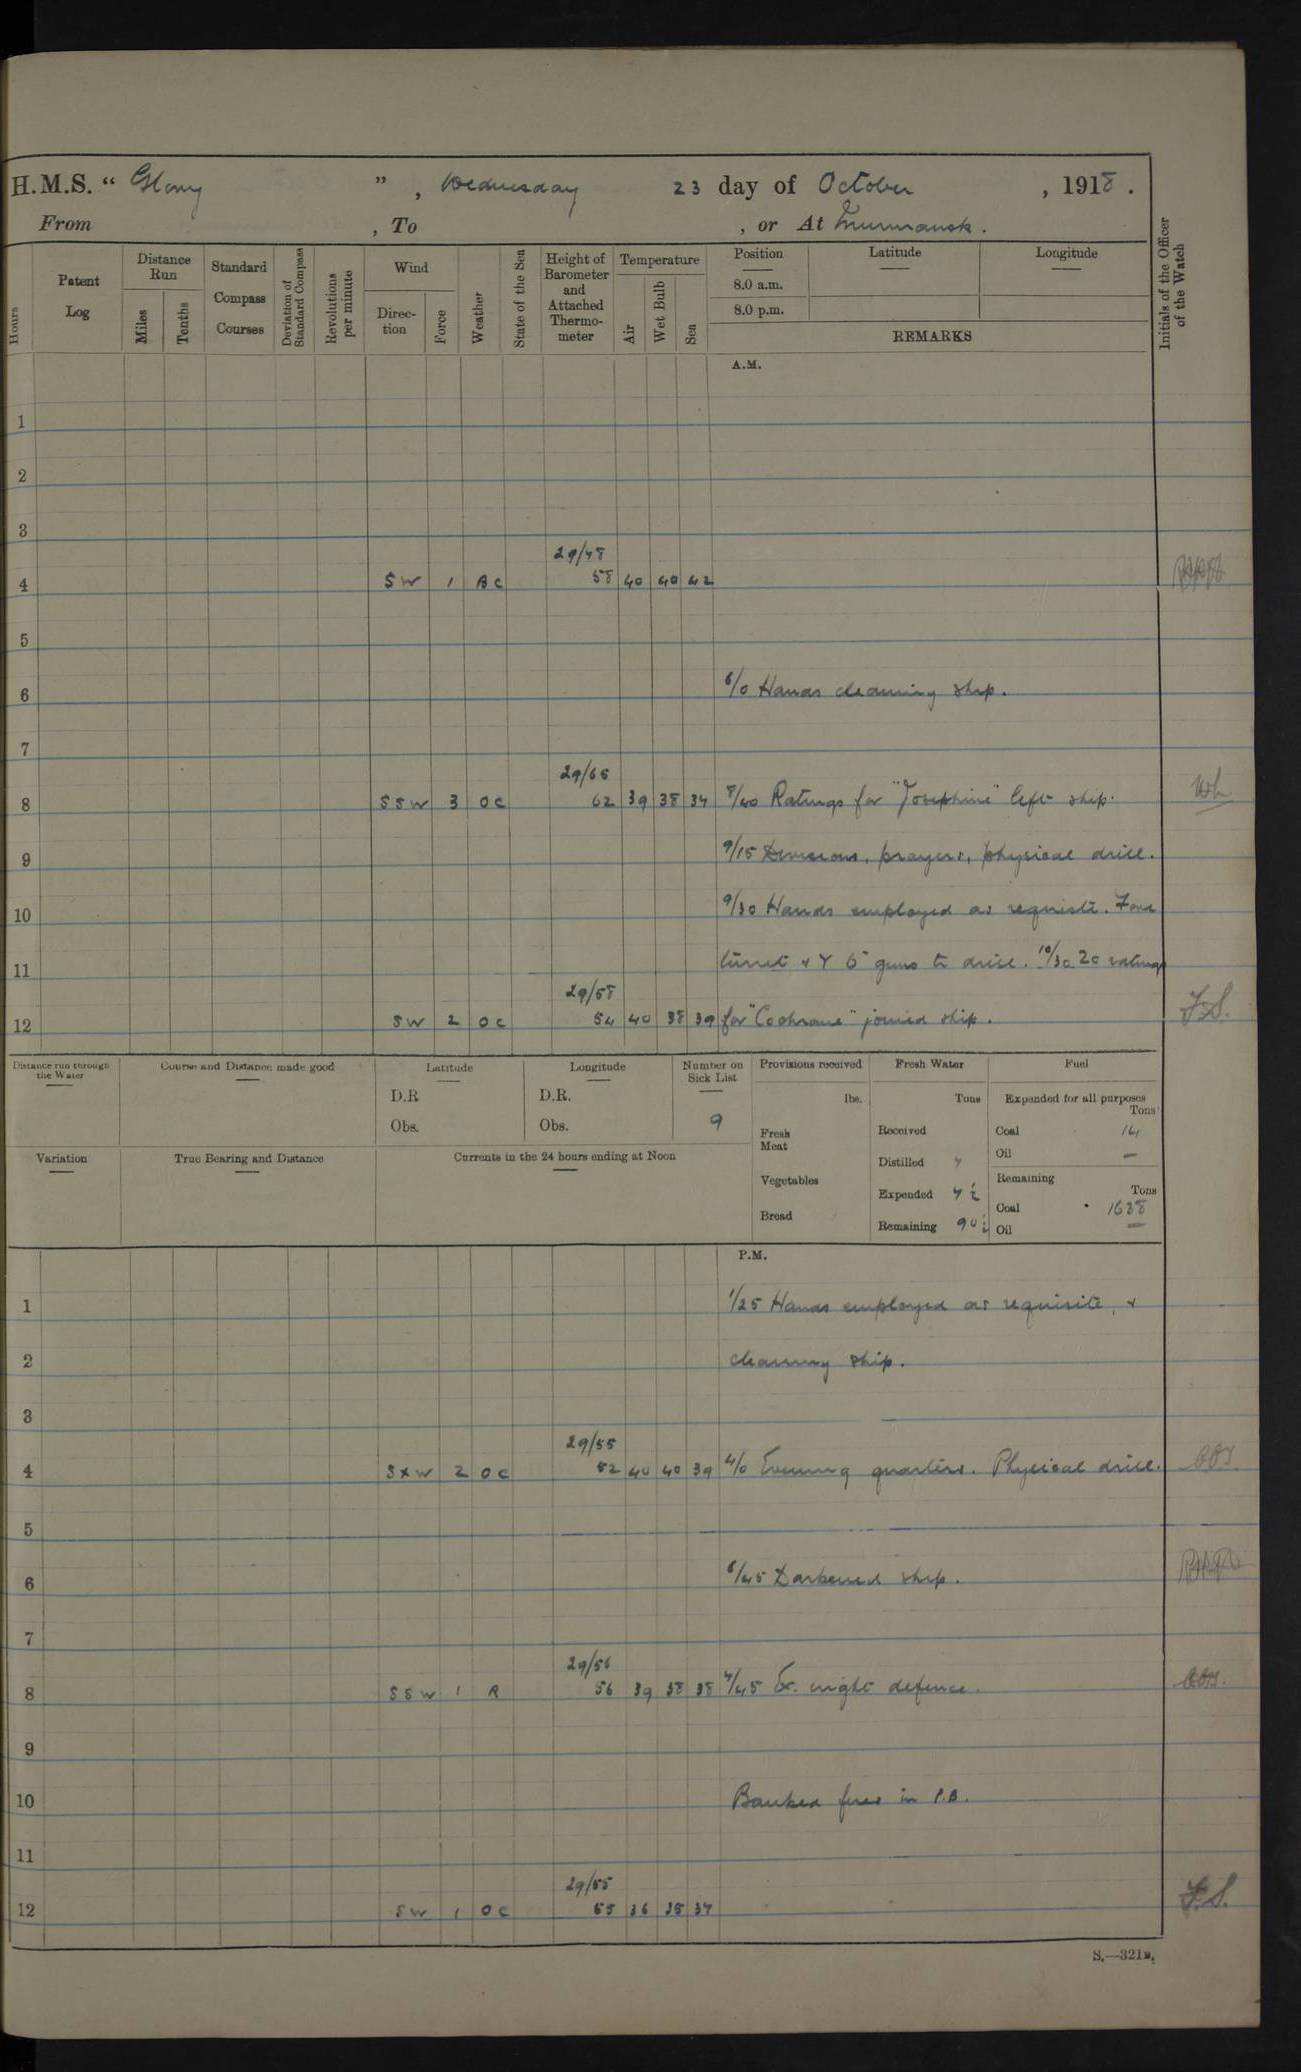 H.M.S. "Glory", Wednesday 23 day of October, 1918.
From , To , or At Murmansk.
Hours
Patent Log
Distance Run
Miles
Tenths
Standard Compass Courses
Deviation of Standard Compass
Revolutions per minute
Wind
Direction
Force
Weather
State of the Sea
Height of Barometer and Attached Thermometer
Temperature
Air
Wet Bulb
Sea
Position
8.0 a.m.
8.0 p.m.
Latitude
Longitude
REMARKS
Initials of the Officer of the Watch
A.M.
1
2
3
29/48
4 SW 1 BC 58 40 40 42
5
6 6/0 Hands cleaning ship.
7
29/65
8 SSW 3 OC 62 39 38 34 8/40 Ratings for "Josephine" left ship. Wh
9 9/15 Divisions, prayers, physical drill.
10 9/30 Hands employed as requisite. Fore
11 turret & Y 6" guns to drill. 10/30 20 ratings
29/58
12 SW 2 OC 54 40 38 39 for "Cochrane" joined ship. F.S.
Distance run through the Water
Course and Distance made good
Latitude
D.R
Obs.
Longitude
D.R.
Obs.
Number on Sick List
9
Provisions received
lbs.
Fresh Meat
Vegetables
Bread
Fresh Water
Tons
Received
Distilled
Expended
Remaining
Fuel
Expended for all purposes
Tons
Coal
Oil —
Remaining
Tons
Coal
Oil —
Variation
True Bearing and Distance
Currents in the 24 hours ending at Noon
P.M.
1 1/25 Hands employed as requisite, &
2 cleaning ship.
3
29/55
4 SxW 2 OC 52 40 40 39 4/0 Evening quarters. Physical drill.
5
6 6/45 Darkened ship.
7
29/56
8 SSW 1 R 56 39 38 38 7/45 Ex. night defence.
9
10 Banked fires in P.B.
11
29/55
12 SW 1 OC 55 36 35 37 F.S.
S.—321B.